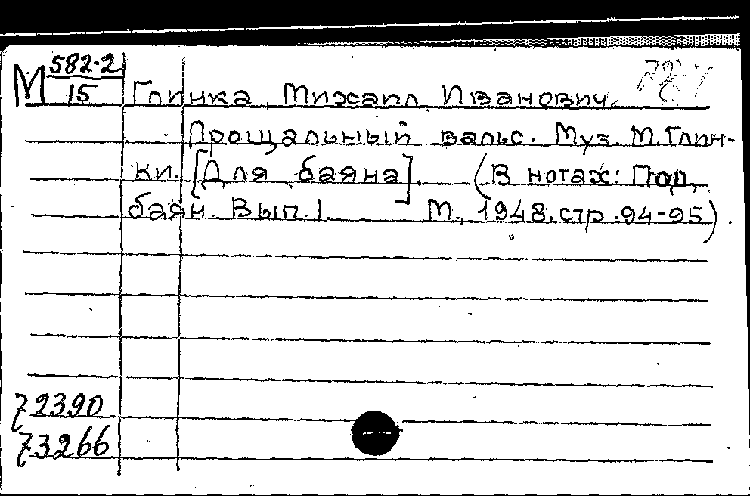 М 582-2
15
Глинка, Михаил Иванович.
Прощальный вальс. Муз. М. Глин-
ки. [Для баяна]. (В нотах:
баян. Вып. 1 М., 1948, стр. 94-95).
72390
73266